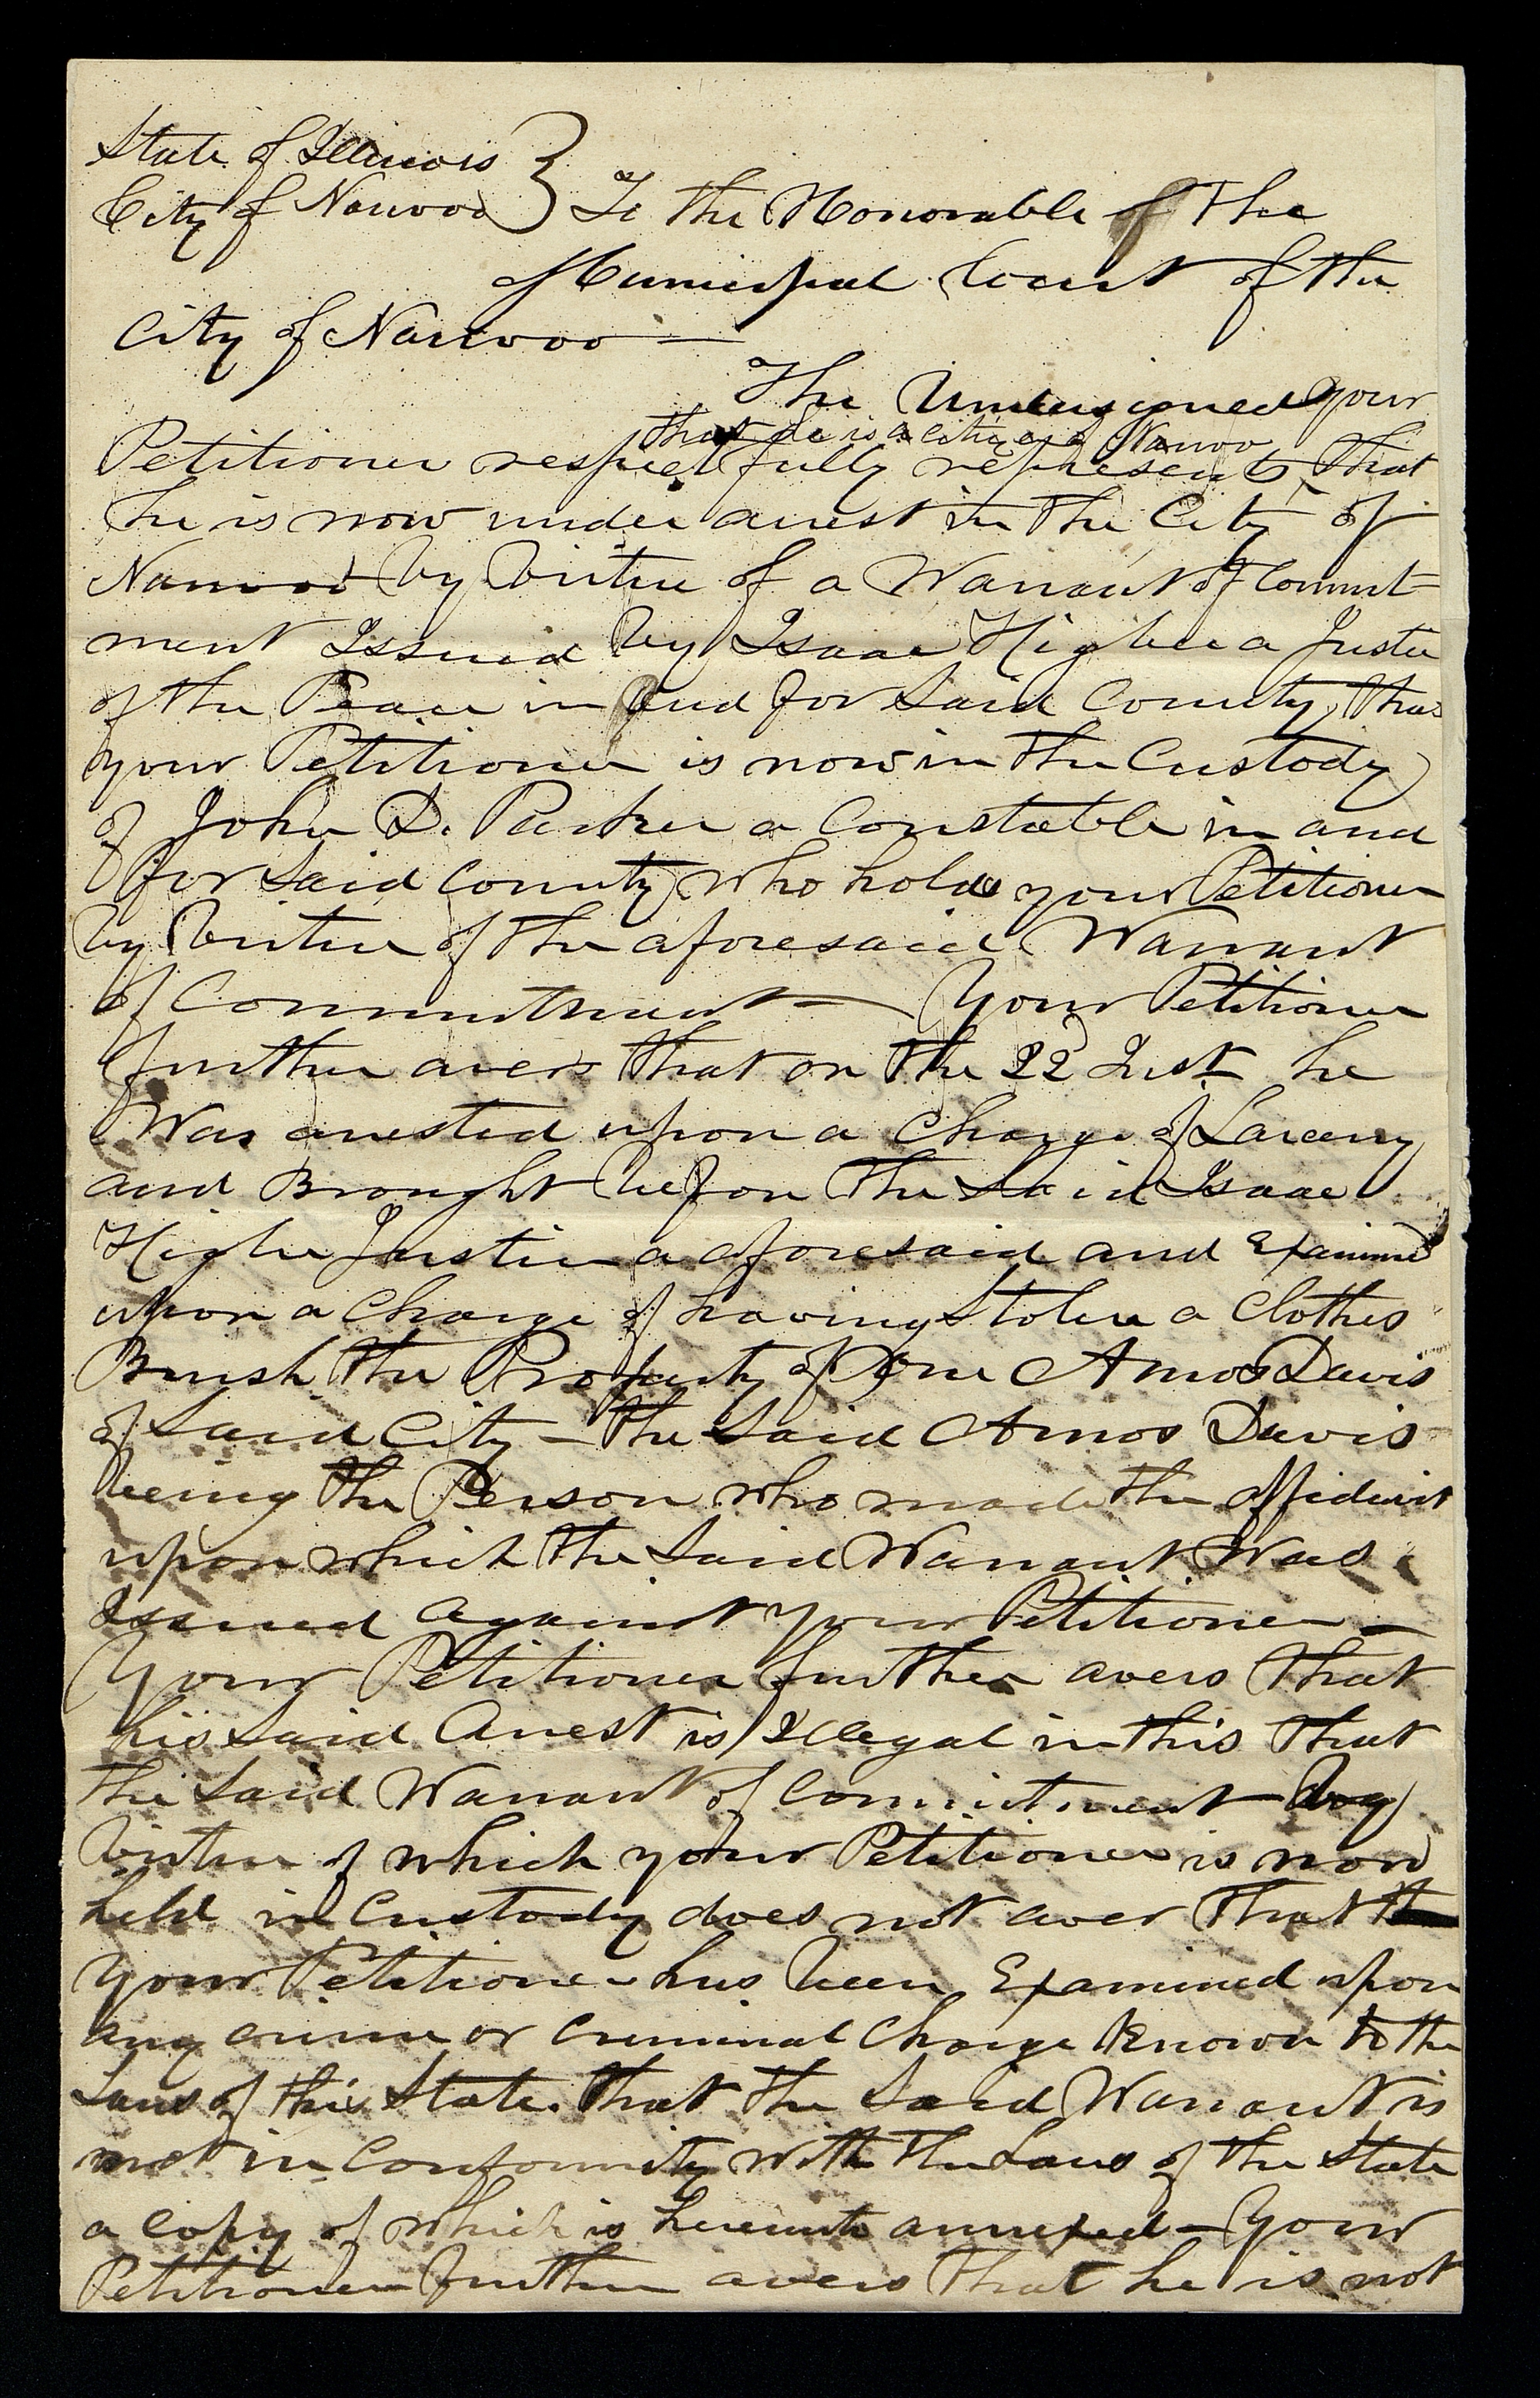 State of Illinois }
City of Nauvoo } To the Honorable of the
Municipal Court of the
City of Nauvoo —
The Undersigned your
that he is a citizen of Nauvoo
Petitioner respectfully represents that
he is now under arrest in the City of
Nauvoo by Virtue of a Warrant of Commit=
ment Issued by Isaac Higbee a Justice
of the Peace in and for Said County, that
your Petitioner is now in the Custody
of John D. Parker a Constable in and
for Said County who holds your Petitioner
by Virtue of the aforesaid Warrant
of Commitment — Your Petitioner
further avers that on the 22d Inst he
Was arrested upon a Charge of Larceny
and Brought before the Said Isaac
Higbee Justice aforesaid and Examined
upon a Charge of having Stolen a Clothes
Brush the Property of One Amos Davis
of Said City — The Said Amos Davis
being the Person who made the affidavit
upon which the Said Warrant Was
Issued against your Petitioner —
Your Petitioner further avers that
his Said Arrest is Illegal in this that
the Said Warrant of Commitment by
Virtue of which your Petitioner is now
held in Custody does not aver that
your Petitioner has been Examined upon
any crime or Criminal Charge Known to the
Laws of this State. that the Said Warrant is
not in Conformity with the Laws of the State
a Copy of which is hereunto annexed — Your
Petitioner further avers that he is not